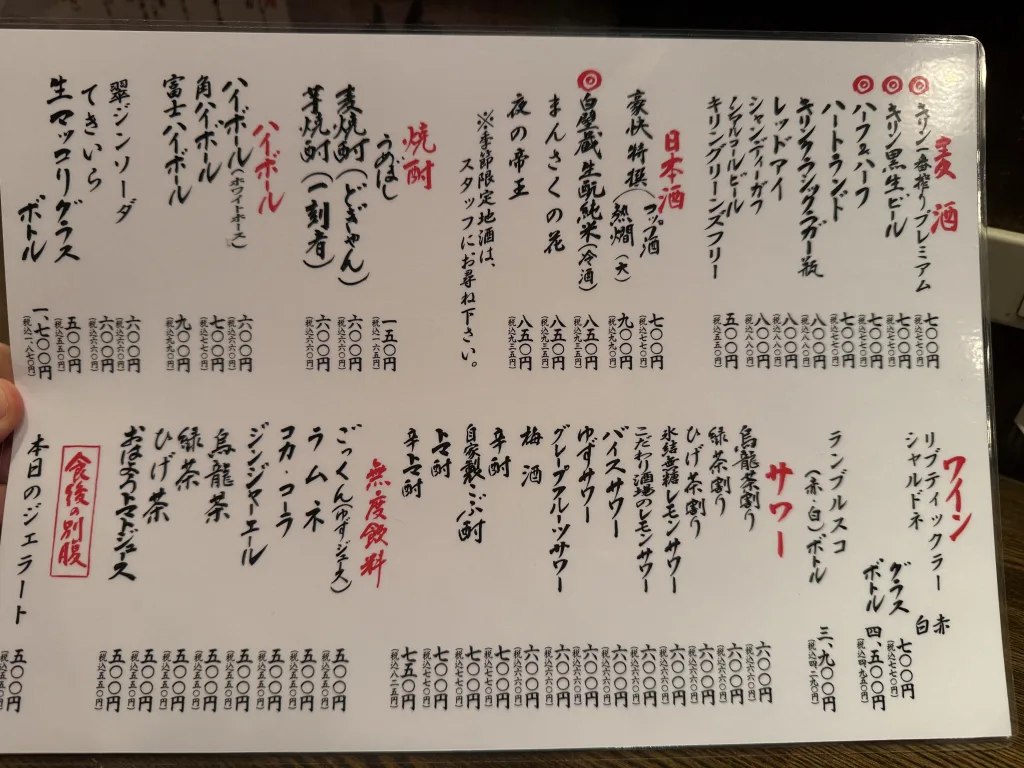 麦酒
キリン一番搾りプレミアム 七〇〇円 (税込七七〇円)
キリン黒生ビール 七〇〇円 (税込七七〇円)
ハーフ&ハーフ 七〇〇円 (税込七七〇円)
ハートランド 七〇〇円 (税込七七〇円)
キリンクラシックラガー瓶 八〇〇円 (税込八八〇円)
レッドアイ 八〇〇円 (税込八八〇円)
シャンディーガフ 八〇〇円 (税込八八〇円)
レアルコールビール
キリングリーンズフリー 五〇〇円 (税込五五〇円)
日本酒
豪快 特撰(コップ酒 七〇〇円 (税込七七〇円)
熱燗(大) 九〇〇円 (税込九九〇円)
白壁蔵 生酛純米(冷酒) 八五〇円 (税込九三五円)
まんさくの花 八五〇円 (税込九三五円)
夜の帝王 八五〇円 (税込九三五円)
※季節限定地酒は、
スタッフにお尋ね下さい。
焼酎
うめぼし 一五〇円 (税込一六五円)
麦焼酎(どぎゃん) 六〇〇円 (税込六六〇円)
芋焼酎(一刻者) 六〇〇円 (税込六六〇円)
ハイボール
ハイボール(ホワイトホース) 六〇〇円 (税込六六〇円)
角ハイボール 七〇〇円 (税込七七〇円)
富士ハイボール 九〇〇円 (税込九九〇円)
翠ジンソーダ 六〇〇円 (税込六六〇円)
てきいら 六〇〇円 (税込六六〇円)
生マッコリ グラス 五〇〇円 (税込五五〇円)
ボトル 一、七〇〇円 (税込一、八七〇円)
ワイン
リブティックラー 赤
シャルドネ 白
グラス 七〇〇円 (税込七七〇円)
ボトル 四、五〇〇円 (税込四、九五〇円)
ランブルスコ
(赤・白)ボトル 三、九〇〇円 (税込四、二九〇円)
サワー
烏龍茶割り 六〇〇円 (税込六六〇円)
緑茶割り 六〇〇円 (税込六六〇円)
ひげ茶割り 六〇〇円 (税込六六〇円)
氷結無糖レモンサワー 六〇〇円 (税込六六〇円)
こだわり酒場のレモンサワー 六〇〇円 (税込六六〇円)
バイスサワー 六〇〇円 (税込六六〇円)
ゆずサワー 六〇〇円 (税込六六〇円)
グレープフルーツサワー 六〇〇円 (税込六六〇円)
梅酒 六〇〇円 (税込六六〇円)
辛酎 七〇〇円 (税込七七〇円)
自家製こぶ酎 七〇〇円 (税込七七〇円)
トマ酎 七〇〇円 (税込七七〇円)
辛トマ酎 七五〇円 (税込八二五円)
無度飲料
ごっくん(ゆずジュース) 五〇〇円 (税込五五〇円)
ラムネ 五〇〇円 (税込五五〇円)
コカ・コーラ 五〇〇円 (税込五五〇円)
ジンジャーエール 五〇〇円 (税込五五〇円)
烏龍茶 五〇〇円 (税込五五〇円)
緑茶 五〇〇円 (税込五五〇円)
ひげ茶 五〇〇円 (税込五五〇円)
おはようトマトジュース 五〇〇円 (税込五五〇円)
食後の別腹
本日のジェラート 五〇〇円 (税込五五〇円)